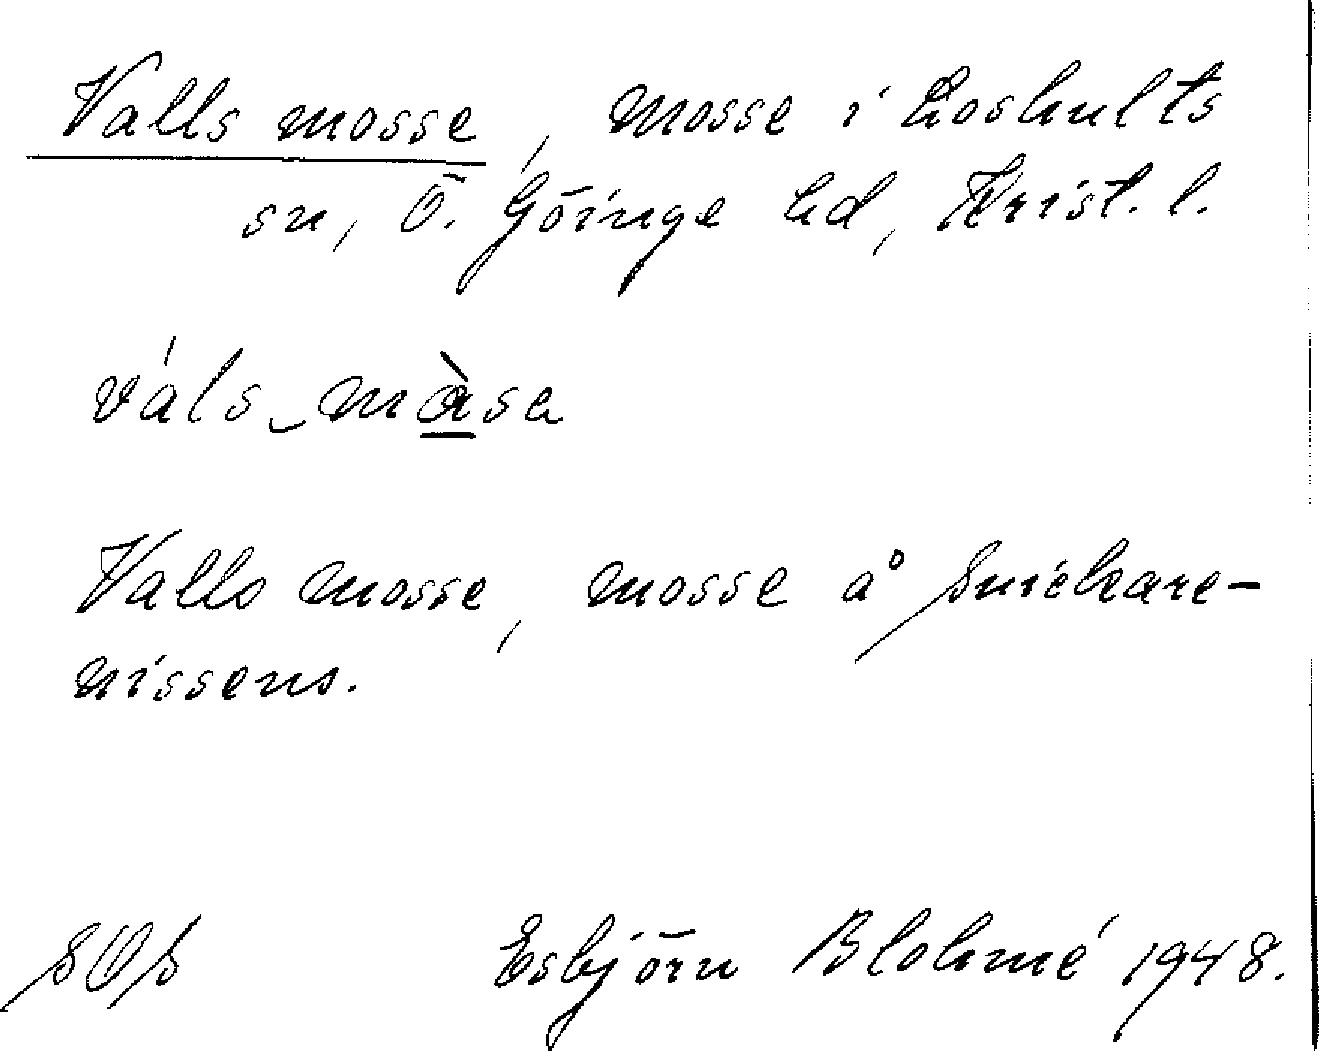 Valls mosse, mosse i Loshults
sn, Ö. Göinge hd, Krist. l.
váls_màsa
Valls mosse, mosse å Snickare-
nissens.
SOS Esbjörn Blohmé 1948.